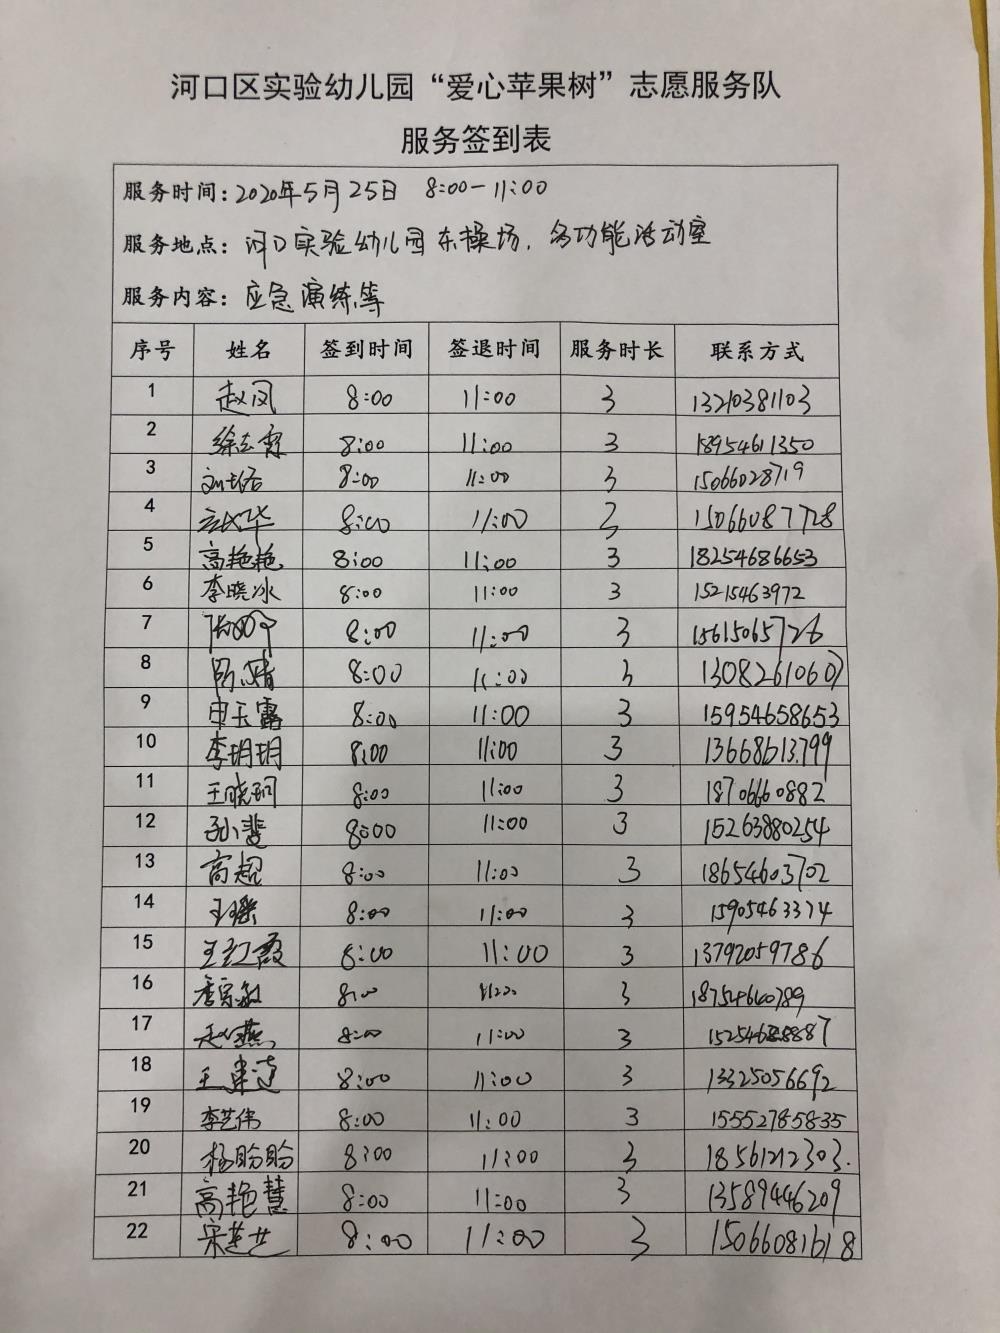 河口区实验幼儿园“爱心苹果树”志愿服务队
服务签到表
服务时间:2020年5月25日 8:00-11:00
服务地点:河口实验幼儿园东操场,多功能活动室
服务内容:应急演练等
序号 姓名 签到时间 签退时间 服务时长 联系方式
1 赵凤 8:00 11:00 3 13210381103
2 8:00 11:00 3 18954611350
3 8:00 11:00 3 15066028719
4 8:00 11:00 3 15066087728
5 高艳艳 8:00 11:00 3 18254686653
6 李晓冰 8:00 11:00 3 15215463972
7 8:00 11:00 3 15615065726
8 8:00 11:00 3 13082610607
9 申玉露 8:00 11:00 3 15954658653
10 李玥玥 8:00 11:00 3 13668613799
11 王晓珂 8:00 11:00 3 18706660882
12 孙斐 8:00 11:00 3 15263880254
13 高超 8:00 11:00 3 18654603702
14 王瑶 8:00 11:00 3 15905463374
15 王红霞 8:00 11:00 3 13792059786
16 8:00 11:00 3 18754660789
17 赵燕 8:00 11:00 3
18 8:00 11:00 3 13325056692
19 李艺伟 8:00 11:00 3 15552785835
20 杨盼盼 8:00 11:00 3 18561212303.
21 高艳慧 8:00 11:00 3 13589446209
22 8:00 11:00 3 15066081618